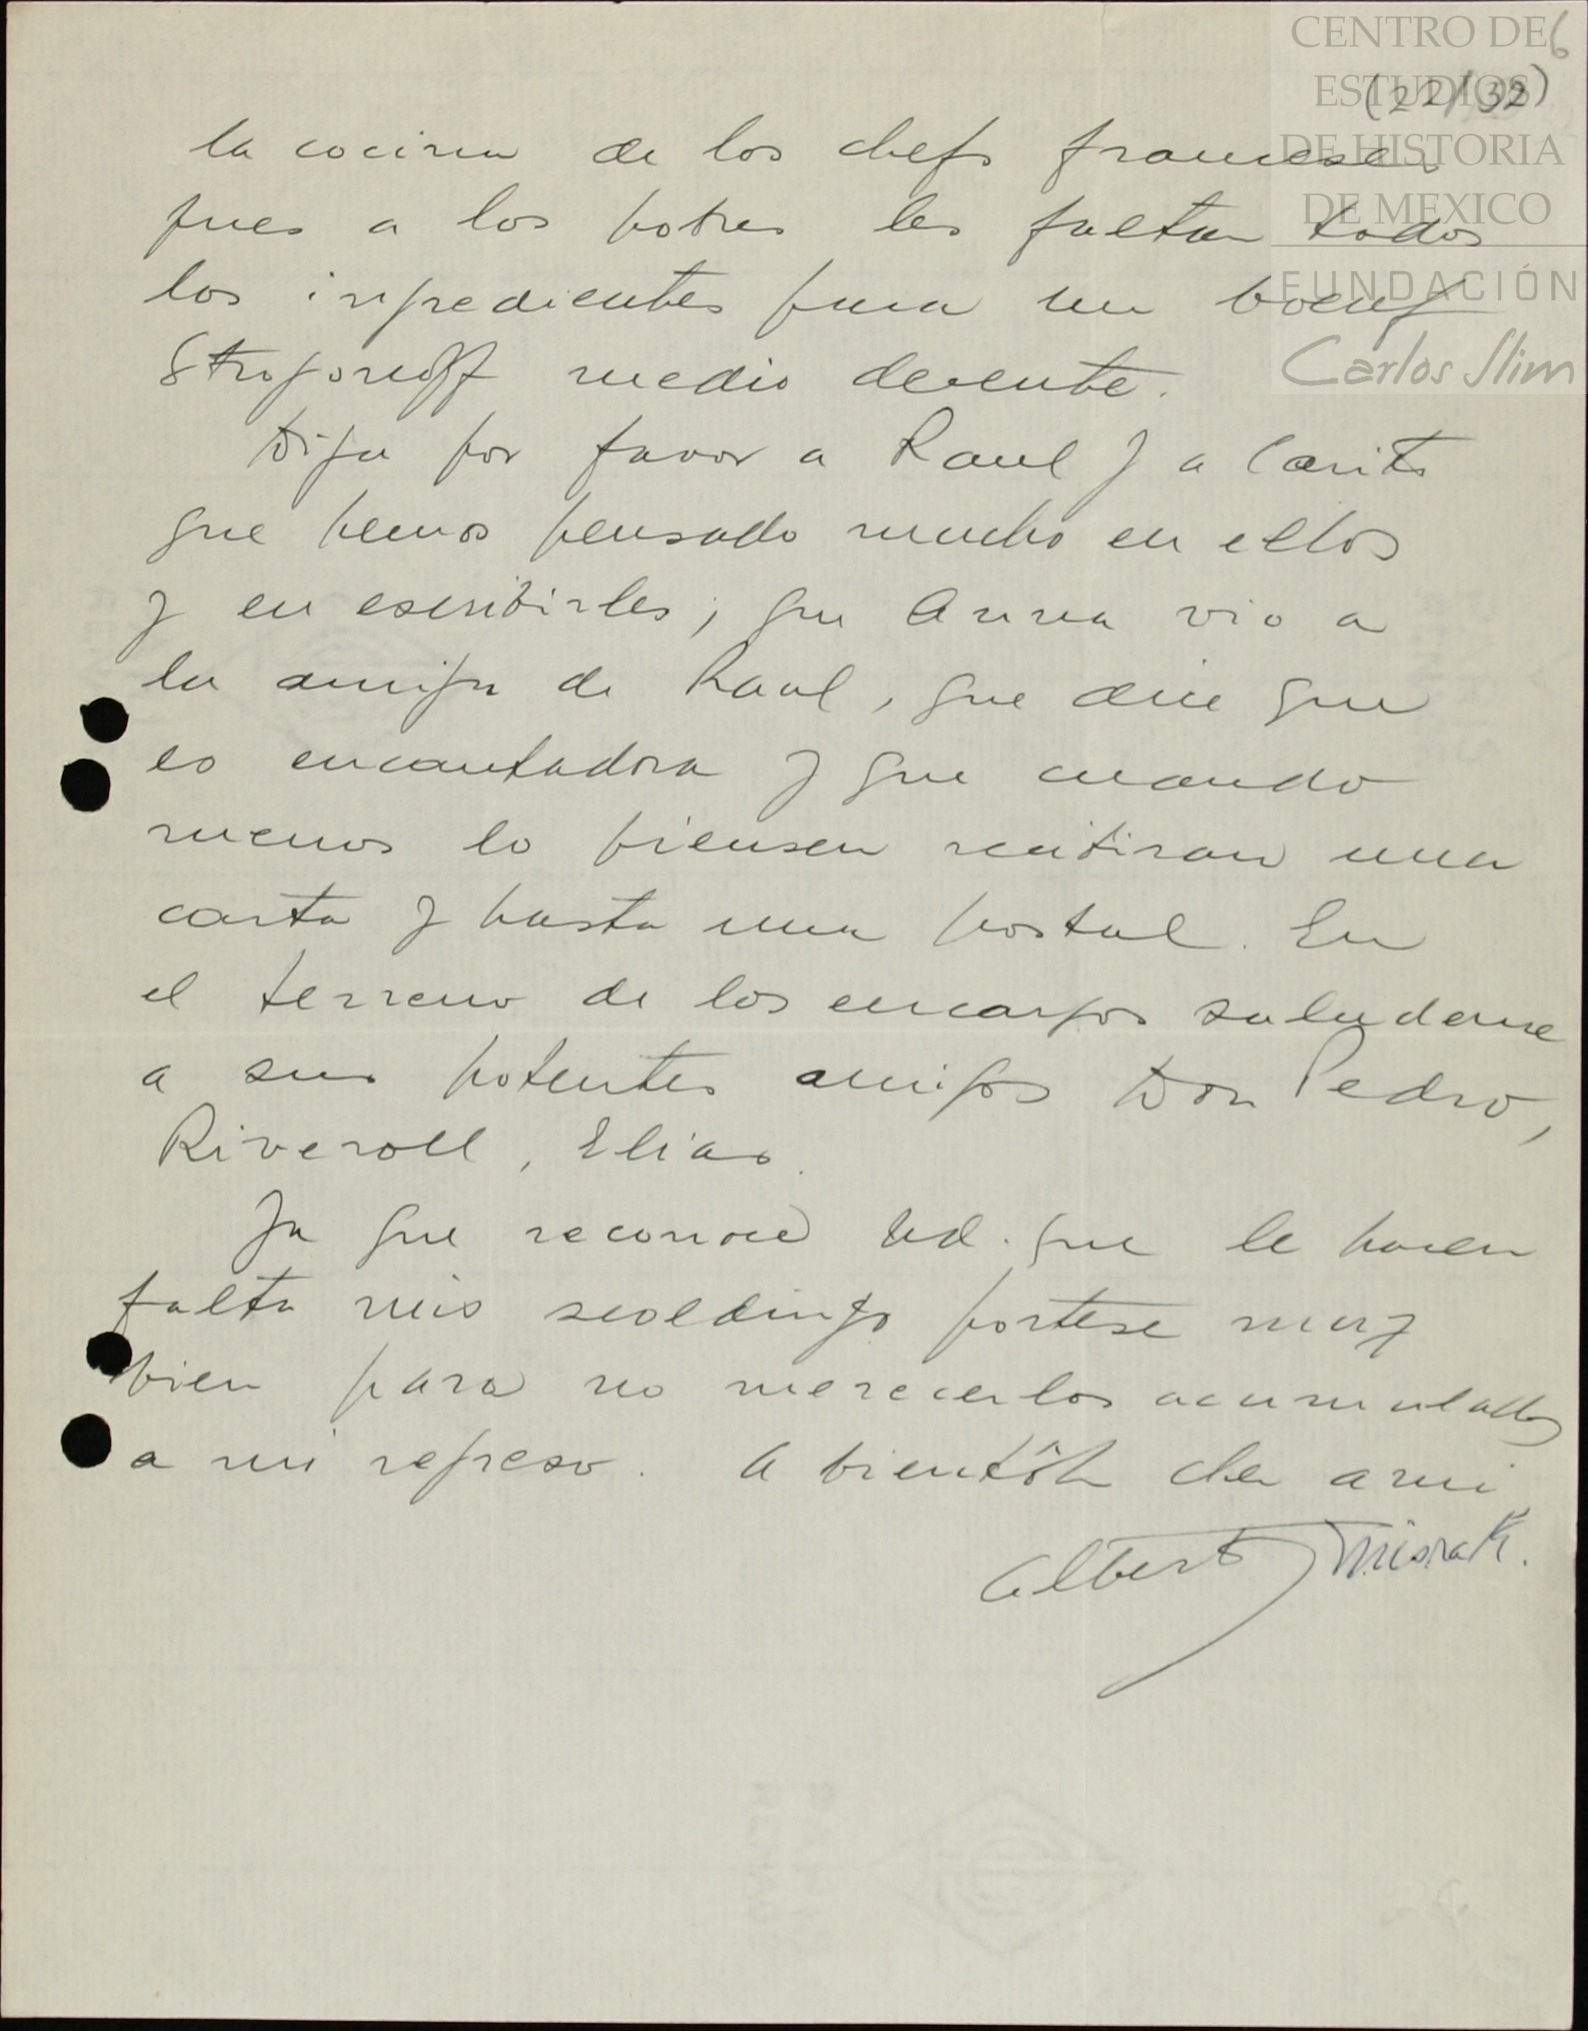 CENTRO DE
ESTUDIOS
DE HISTORIA
DE MEXICO
FUNDACIÓN
Carlos Slim
6
(22/32)
la cocina de los chefs franceses
pues a los pobres les faltan todos
los ingredientes para un boeuf
Strogonoff medio decente.
Diga por favor a Raul y a Carito
que hemos pensado mucho en ellos
y en escribirles, que Anna vio a
la amiga de Raul, que dice que
es encantadora y que cuando
menos lo piensen recibiran una
carta y hasta una postal. En
el terreno de los encargos saludeme
a sus potentes amigos Don Pedro,
Riveroll, Elias.
Ya que reconoce Ud. que le hacen
falta mis scoldings portese muy
bien para no merecerlos acumulados
a mi regreso. A bientôt cher ami
Albert Misrak.